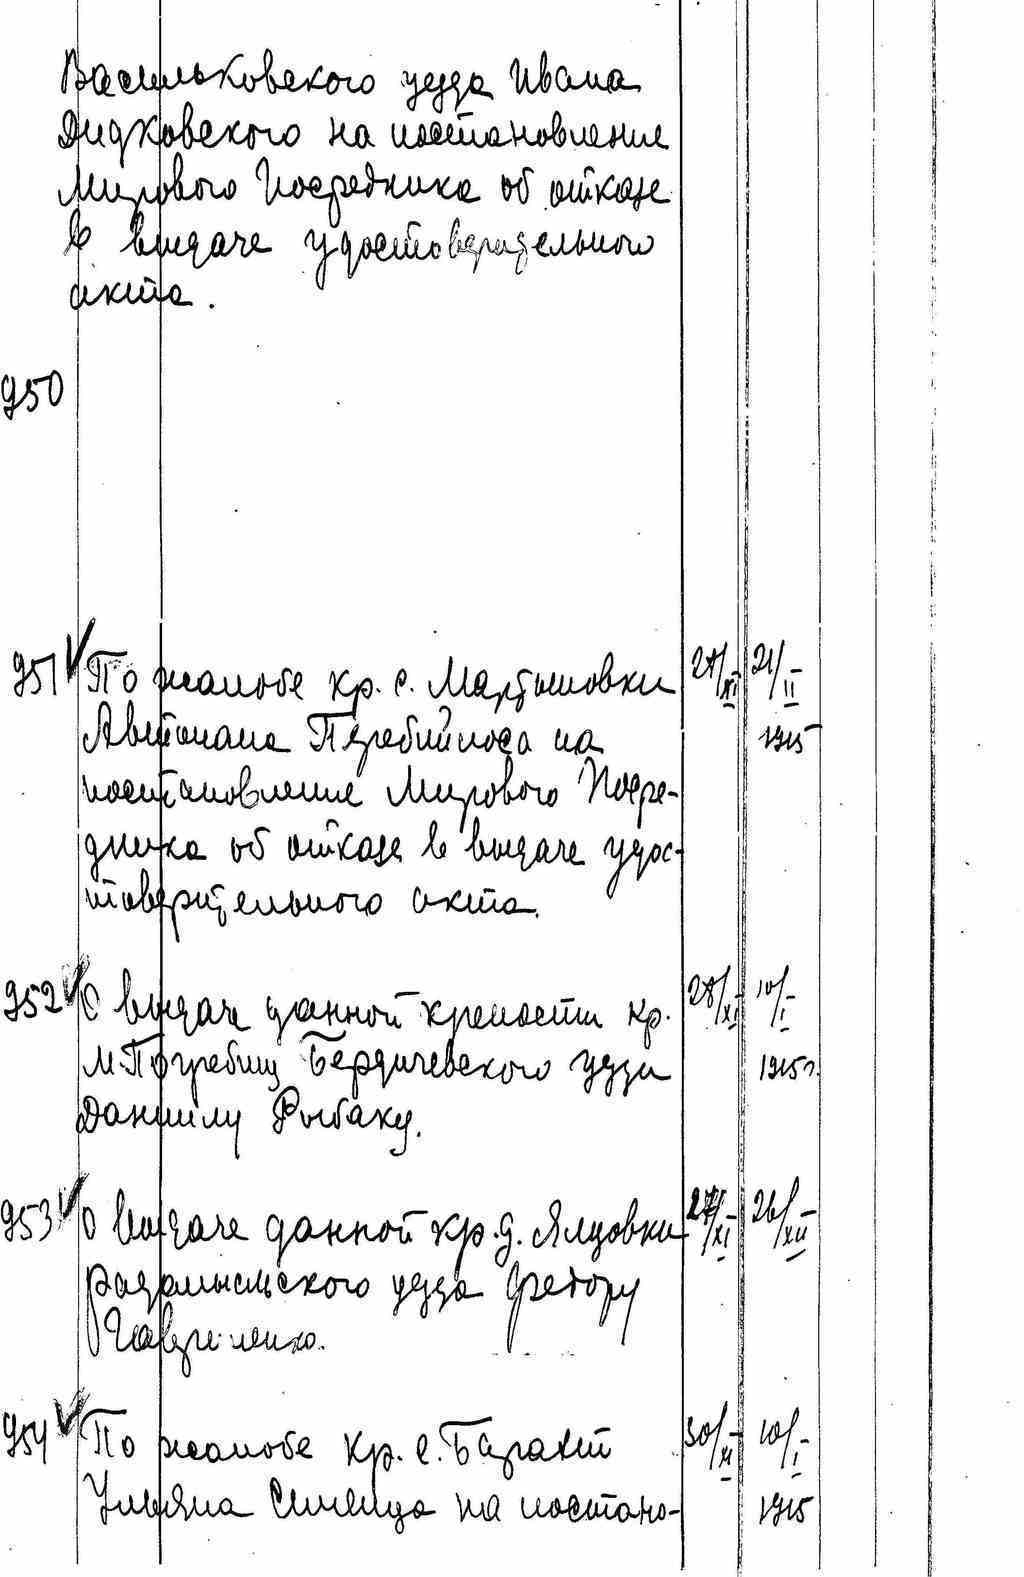 Васильковского уезда Ивана
Дидковского на постановление
Мирового Посредника об отказе
в выдаче удостоверительного
акта.
950
951 По жалобе кр. с. Мартыновки 27/XI 21/II
Автонома Перебийноса на 1915
постановление Мирового Посре-
дника об отказе в выдаче удос-
товерительного акта.
952 О выдаче данной крепости кр. 28/XI 10/I
м. Погребищ Бердичевского уезда 1915 г.
Даниилу Рыбаку.
953 О выдаче данной кр. д. Ялцовки 27/XI 26/XII
Радомысльского уезда Федору
Гавриленко.
954 По жалобе кр. с. Барахт 30/XI 10/I
Ульяна Синенца на постано- 1915